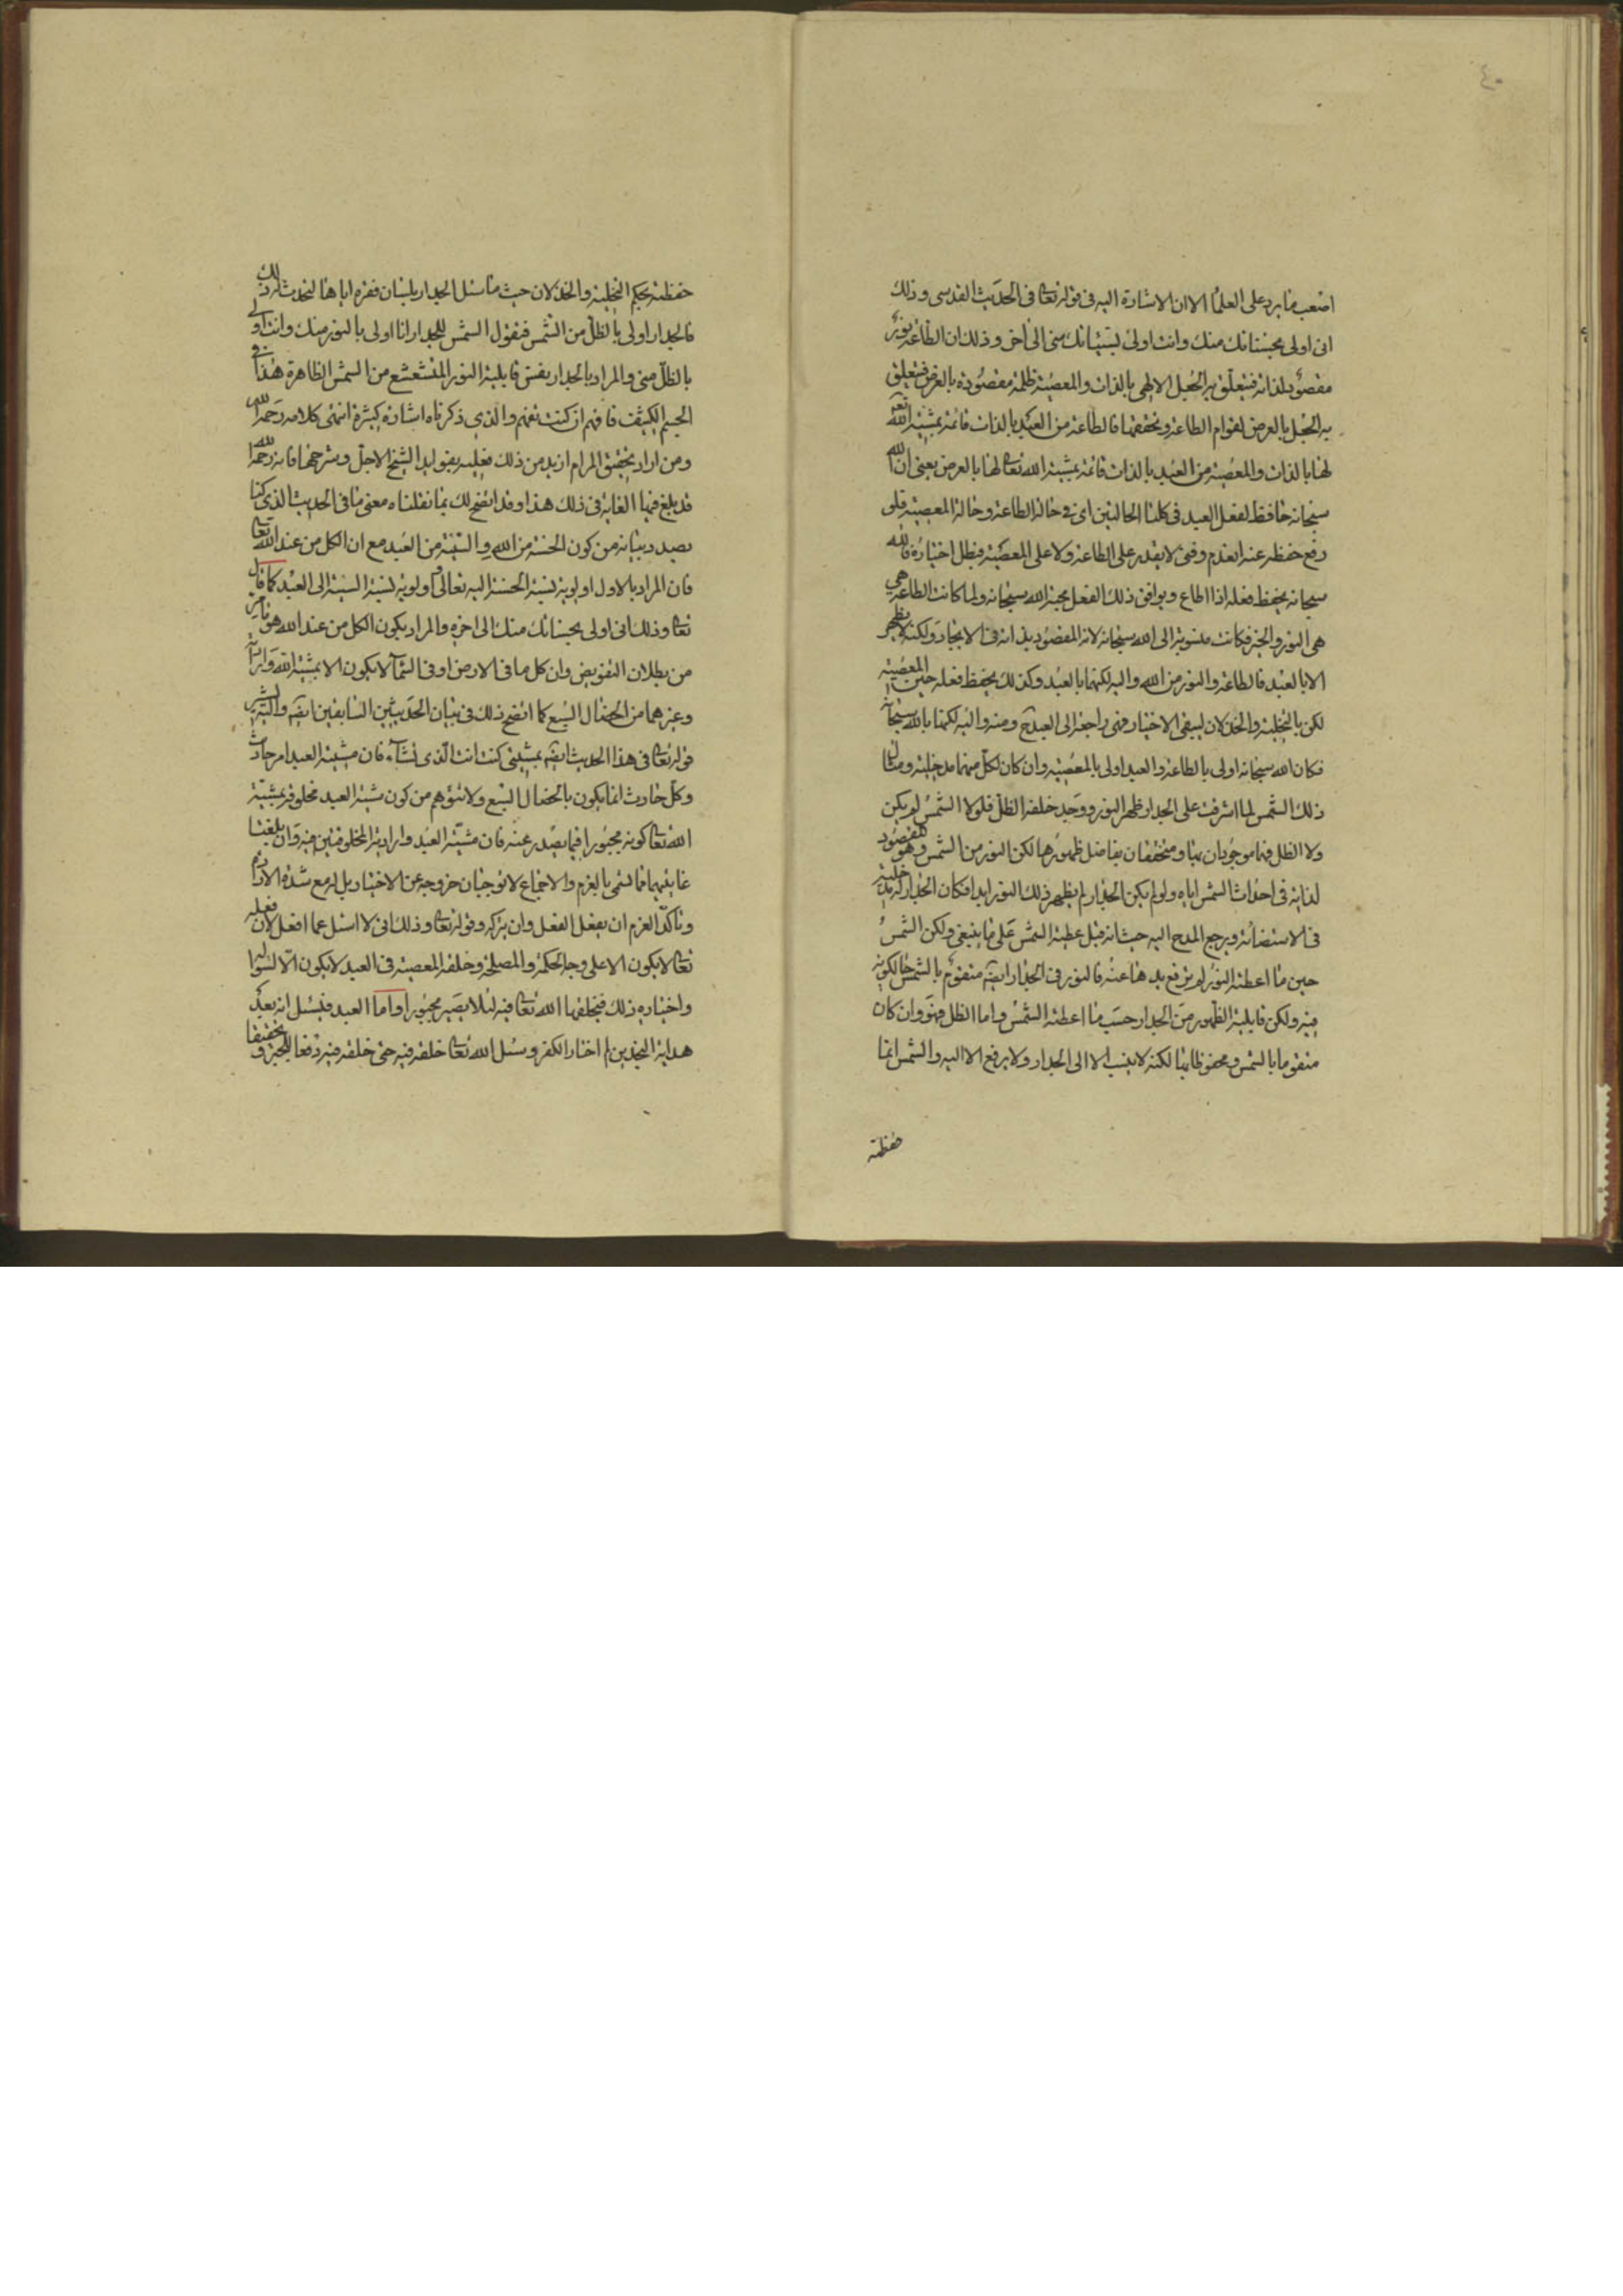 ٤٠
اصعب ما يرد على العلما الا ان الاشارة اليه فى قوله تعا فى الحديث القدسى وذلك
انى اولى بحسناتك منك وانت اولى بسيئاتك منى الى اخر وذلك ان الطاعة نور
مقصود لذاته فيتعلق به الجعل الالهى بالذات والمعصية ظلمة مقصودة بالعرض فيتعلق
به الجعل بالعرض لقوام الطاعة وتحققها فالطاعة من العبد بالذات قائمة بمشية الله تعه
لها بالذات والمعصية من العبد بالذات قائمة بمشية الله تعا لها بالعرض يعنى ان الله
سبحانه حافظ لفعل العبد فى كلتا الحالتين اى فى حالة الطاعة وحالة المعصية فلو
رفع حفظه عنه انعدم وفنى لا يقدر على الطاعة ولا على المعصية فبطل اختياره فالله
سبحانه يحفظ فعله اذا اطاع ويوافق ذلك الفعل محبة الله سبحانه ولما كانت الطاعة هى
هى النور والخير فكانت منسوبة الى الله سبحانه لانه المقصود بذاته فى الايجاد ولكنه لا يظهر
الا بالعبد فالطاعة والنور من الله واليه لكنهما بالعبد وكذلك يحفظ فعله حين المعصية
لكن بالتخلية والخذلان ليبقى الاختيار فهى راجعة الى العبد ومنه واليه لكنها بالله سبحانه
فكان الله سبحانه اولى بالطاعة والعبد اولى بالمعصية وان كان لكل منهما مدخلية ومثال
ذلك الشمس لما اشرقت على الجدار ظهر النور ووجد خلفه الظل فلولا الشمس لم يكن
ولا الظل فهما موجودان بها ومتحققان بفاضل ظهورها لكن النور من الشمس وهو المقصود
لذاته فى احداث الشمس اياه ولو لم يكن الجدار لم يظهر ذلك النور ابدا فكان الجدار له مدخلية
فى الاستضائة ويرجع المدح اليه حيث انه قبل عطية الشمس على ما ينبغى ولكن الشمس
حين ما اعطته النور لم ترفع يدها عنه فالنور فى الجدار ايضه متقوم بالشمس حالكونه
فيه ولكن قابلية الظهور من الجدار حسب ما اعطته الشمس واما الظل فهو وان كان
متقوما بالشمس ومحفوظا بها لكنه لا ينسب الا الى الجدار ولا يرفع الا اليه والشمس انما
حفظته
حفظته بحكم التخلية والخذلان حيث ما سئل الجدار بلسان فقره اياها لتحدث له ذلك
فالجدار اولى بالظل من الشمس فتقول الشمس للجدار انا اولى بالنور منك وانت اولى
بالظل منى والمراد بالجدار نفس قابلية النور المتشعشع من الشمس الظاهرة فى هذا
الجسم الكثيف فافهم ان كنت تفهم والذى ذكرناه اشارة كبيرة انتهى كلامه رحمه الله
ومن اراد تحقيق المرام ازيد من ذلك فعليه بفوايد الشيخ الاجل وشرحها فانه رحمه الله
قد بلغ فيها الغاية فى ذلك هذا وقد اتضح لك بما نقلناه معنى ما فى الحديث الذى كنا
بصدد بيانه من كون الحسنة من الله والسيئة من العبد مع ان الكل من عند الله تعا
فان المراد بالاول اولوية نسبة الحسنة اليه تعالى واولوية نسبة السيئة الى العبد كما قال
تعا وذلك انى اولى بحسناتك منك الى اخره والمراد بكون الكل من عند الله هو ما مر
من بطلان التفويض وان كل ما فى الارض او فى السماء لا يكون الا بمشية الله وارادته
وغيرهما من الخصال السبع كما اتضح ذلك فى بيان الحديثين السابقين ايضه واليه يشير
قوله تعا فى هذا الحديث ايضه بمشيتى كنت انت الذى تشاء فان مشية العبد امر حادث
وكل حادث انما يكون بالخصال السبع ولا نتوهم من كون مشية العبد مخلوقة بمشية
الله تعا كونه مجبورا فيما يصدر عنه فان مشية العبد وارادته المخلوقتين فيه وان بلغتا
غايتهما فما لنتمى بالعزم والاجماع لا توجبان خروجه عن الاختيار بل له مع شدة الارادة
وتاكد العزم ان يفعل الفعل وان يتركه وقوله تعا وذلك انى لا اسئل عما افعل لان فعله
تعا لا يكون الا على وجه الحكمة والمصلحة وخلقه المعصية فى العبد لا يكون الا لسؤاله
واختياره ذلك فيخلقها الله تعا فيه لئلا يصير مجبورا واما العبد فيسئل انه بعد
هداية النجدين لم اختار الكفر وسئل الله تعا خلقه فيه حتى خلقه فيه دفعا للجبر و تحقيقا